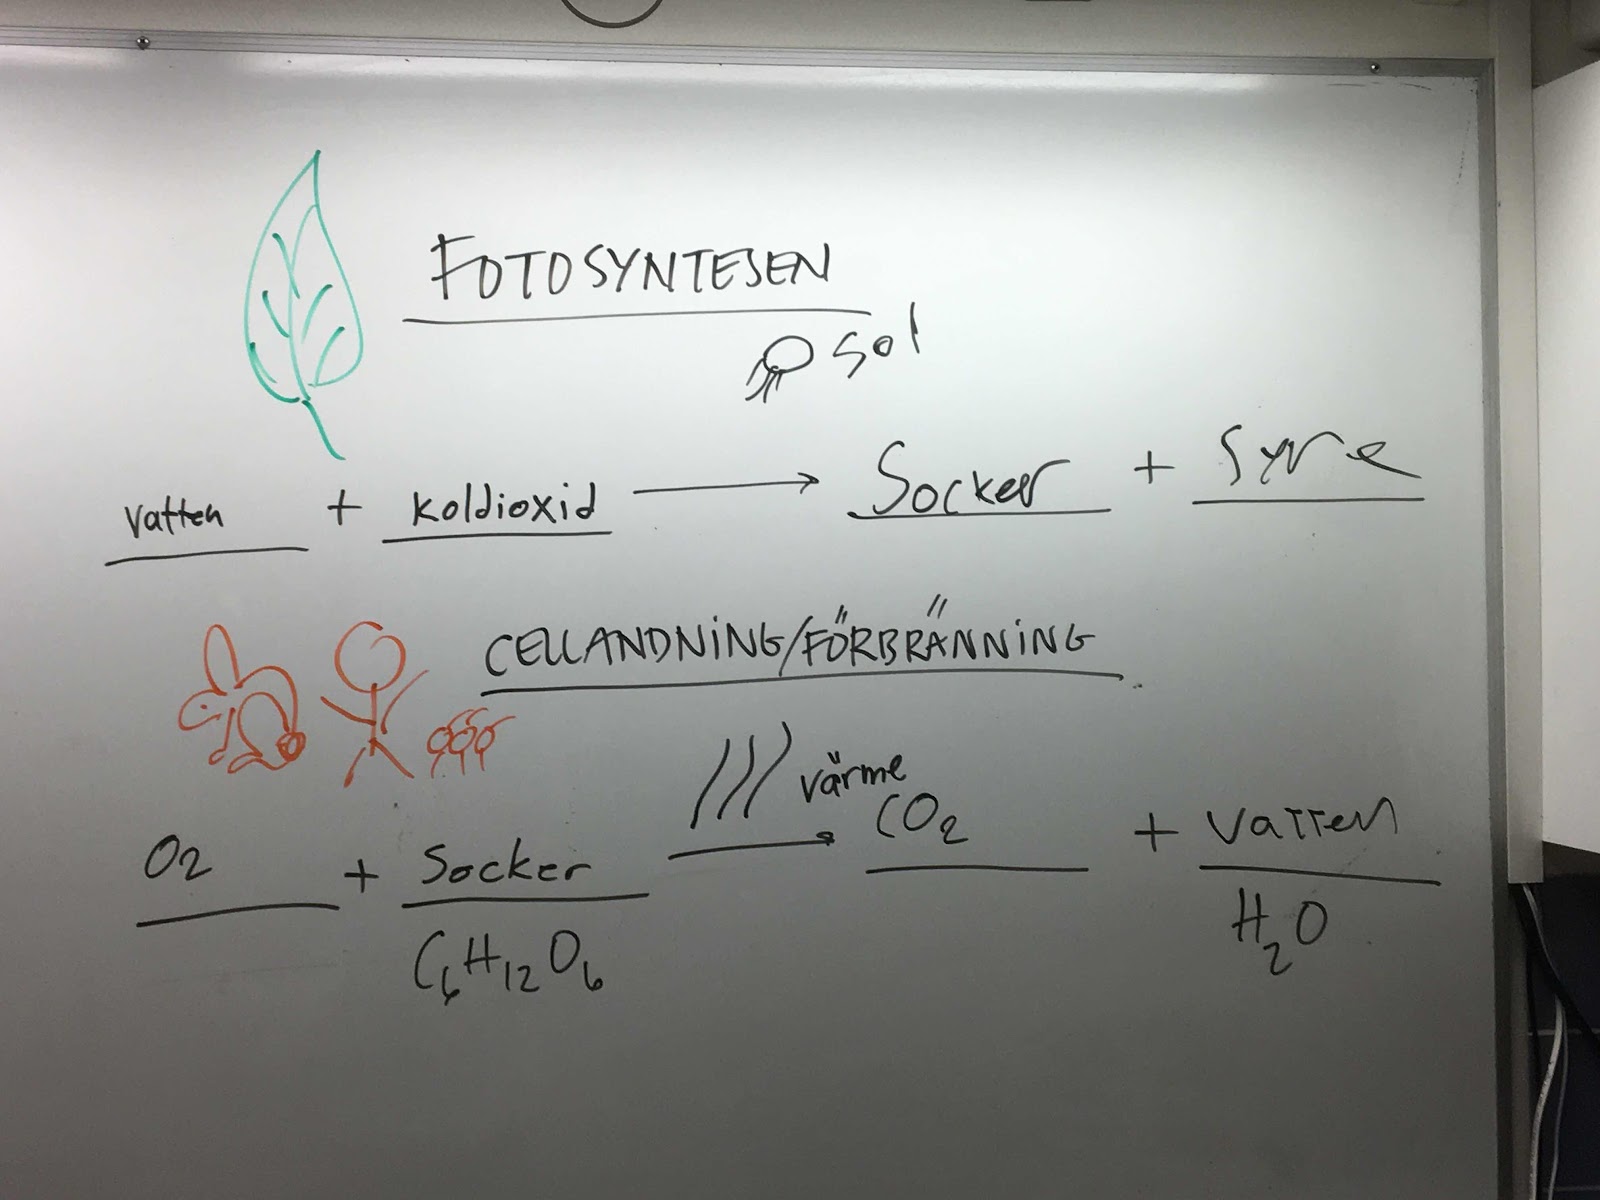 FOTOSYNTESEN
sol
vatten + koldioxid → Socker + syre
CELLANDNING/FÖRBRÄNNING
värme
O2 + Socker → CO2 + vatten
C6H12O6 H2O